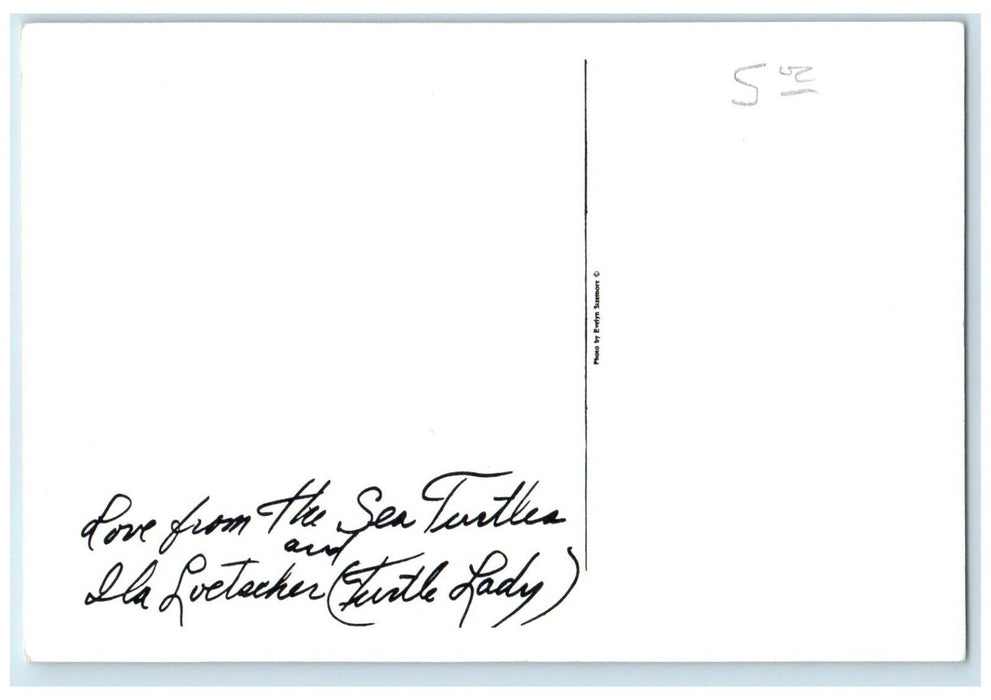 5 00
Photo by Evelyn Sizemore ©
Love from the Sea Turtles
and
Ila Loetscher (Turtle Lady)